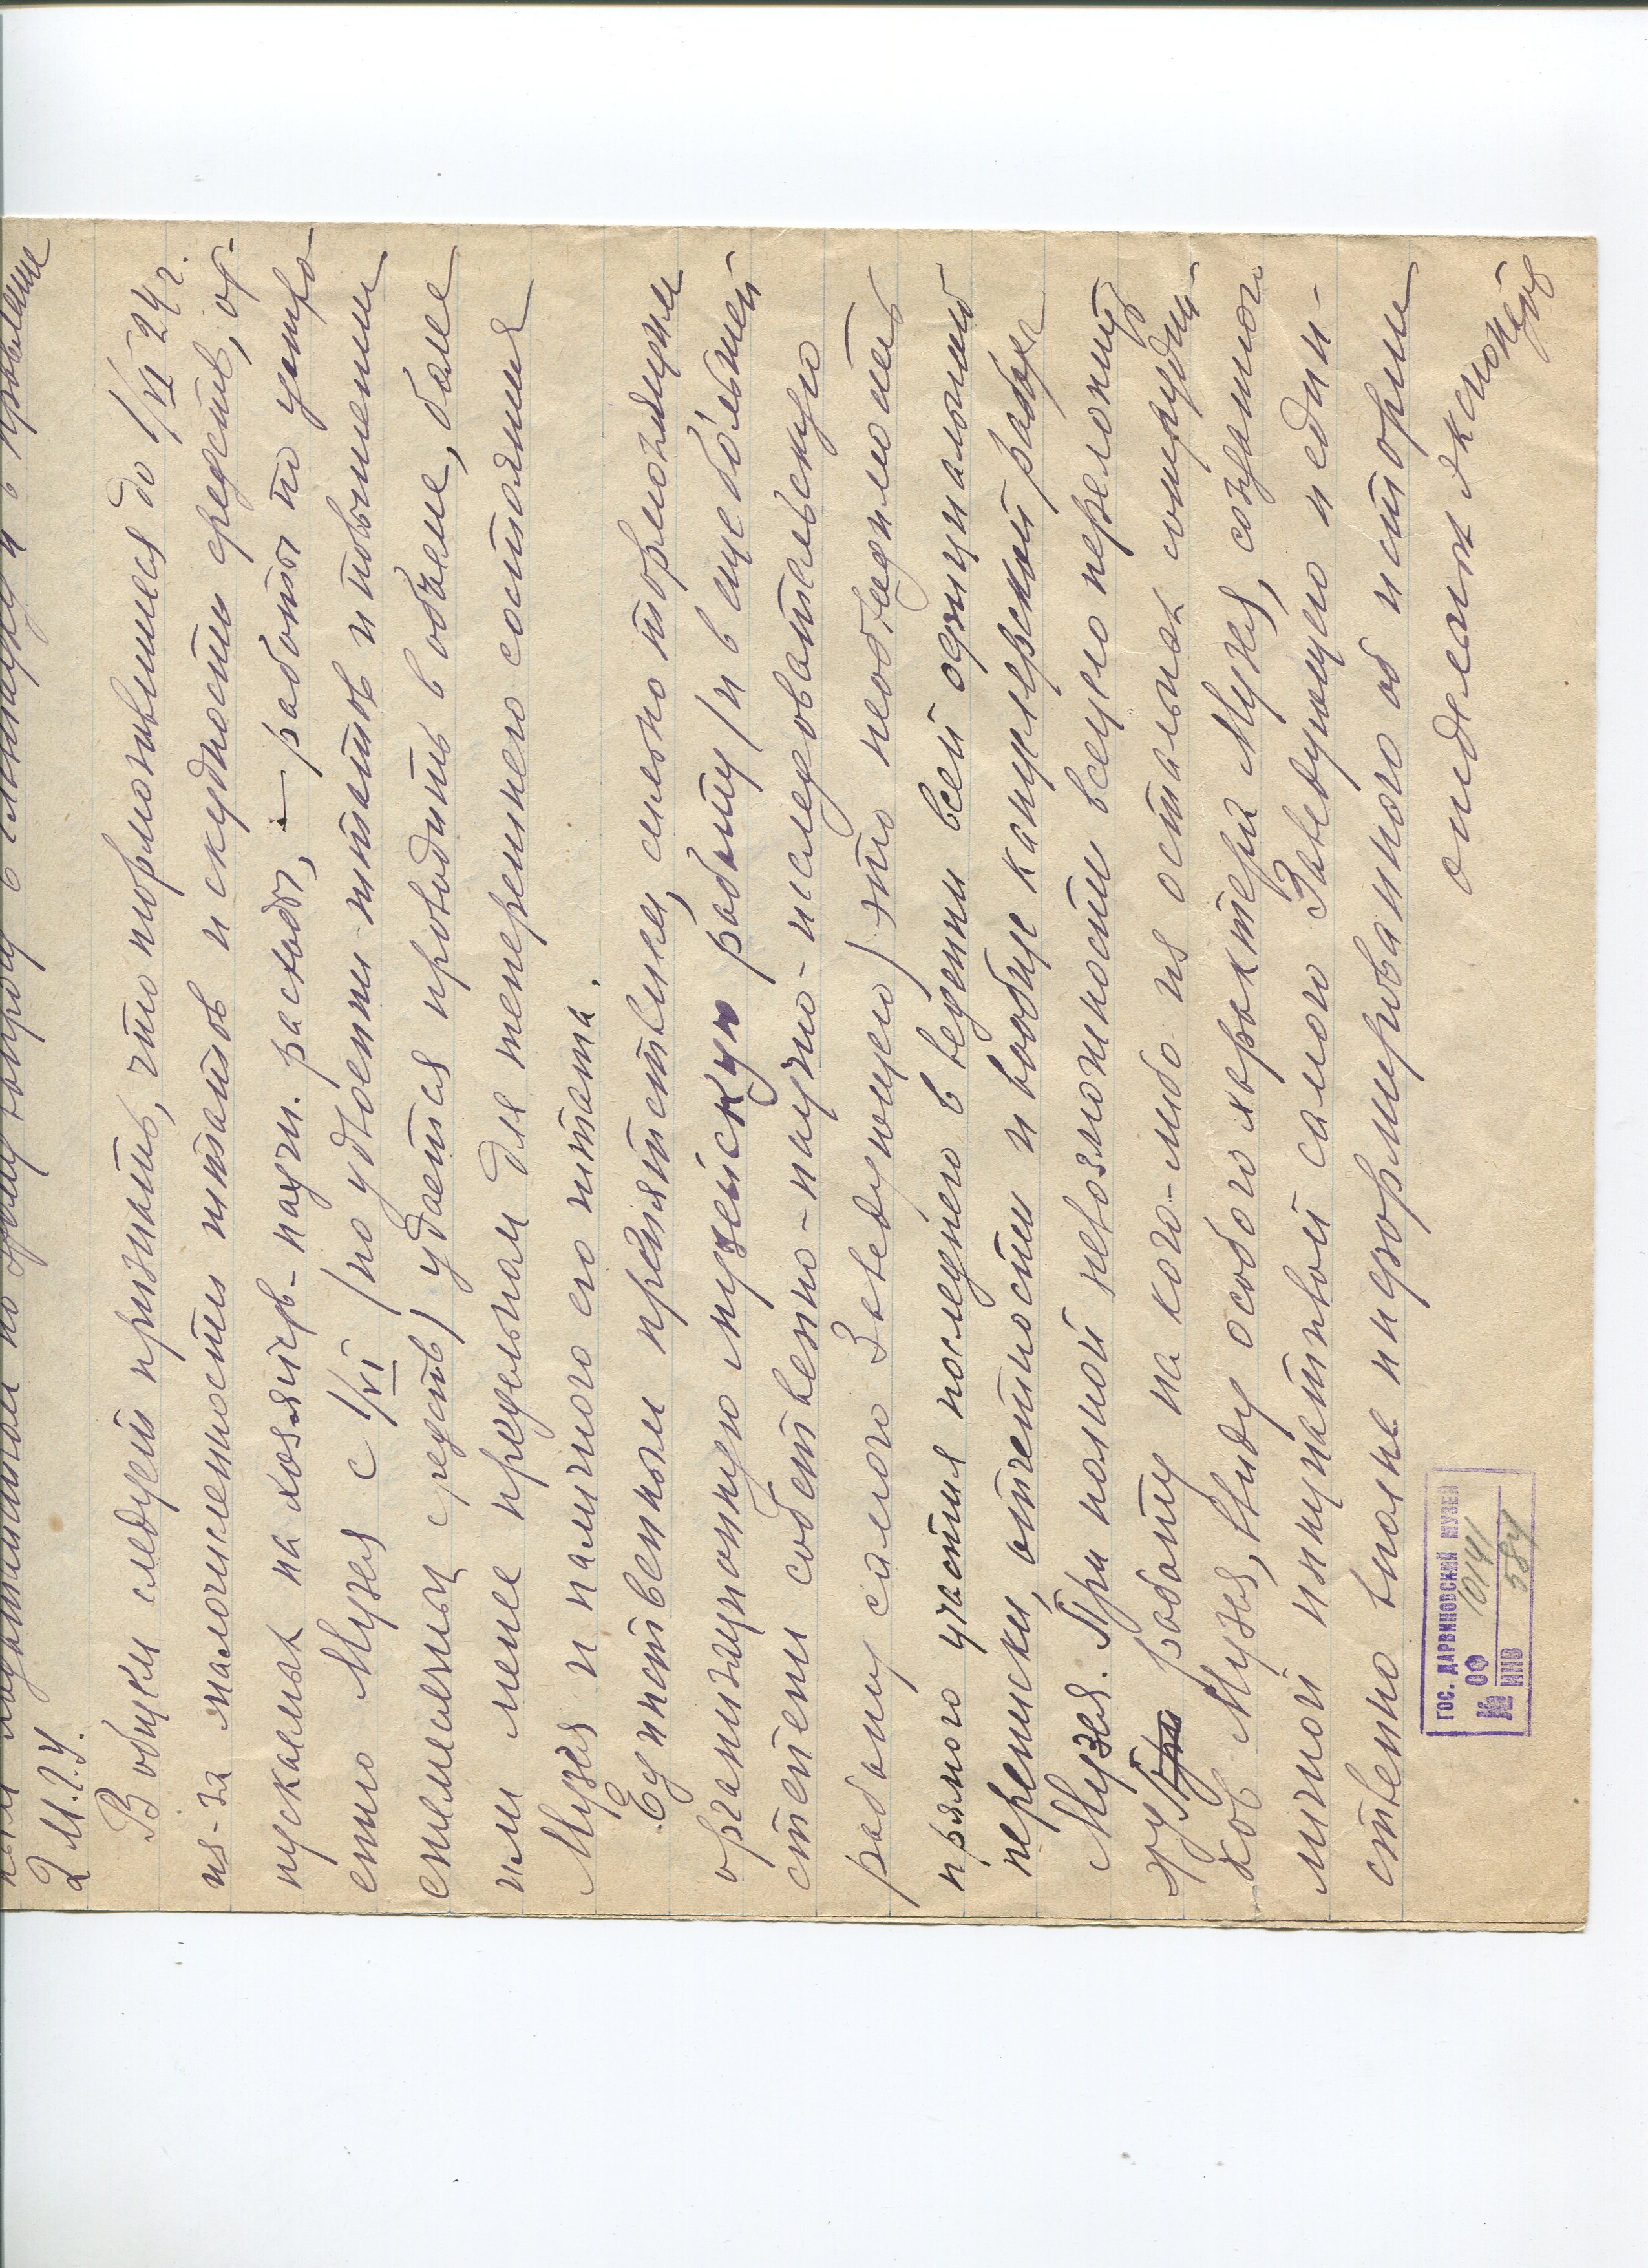 по этому вопросу в Главнауку и в Правление
2 М.Г.У.
В общем следует признать, что тормозившиеся до 1/VI 24 г.
из-за малочисленности штатов и скудности средств, от-
пускаемых на хозяйств.-научн. расходы, — работы по устро-
ству Музея с 1/VI (по удвоении штатов и повышении
отпускаемых средств) удается проводить в объеме, более
или менее предельном для теперешнего состояния
Музея и наличного его штата.
Единственным препятствием, сильно тормозящим
организационную музейскую работу (и в еще большей
степени собственно-научно-исследовательскую
работу самого Заведующего) это необходимость
прямого участия последнего в ведении всей официальной
переписки, отчетности и вообще канцелярской работы
Музея. При полной невозможности всецело переложить
эту работу на кого-либо из остальных сотрудни-
ков Музея, ввиду особого характера Музея, созданного
личной инициативой самого Заведующего и един-
ственно вполне информированного об истории
отделения экспонатов
ГОС. ДАРВИНОВСКИЙ МУЗЕЙ
№ ОФ 10141
ИНВ 584